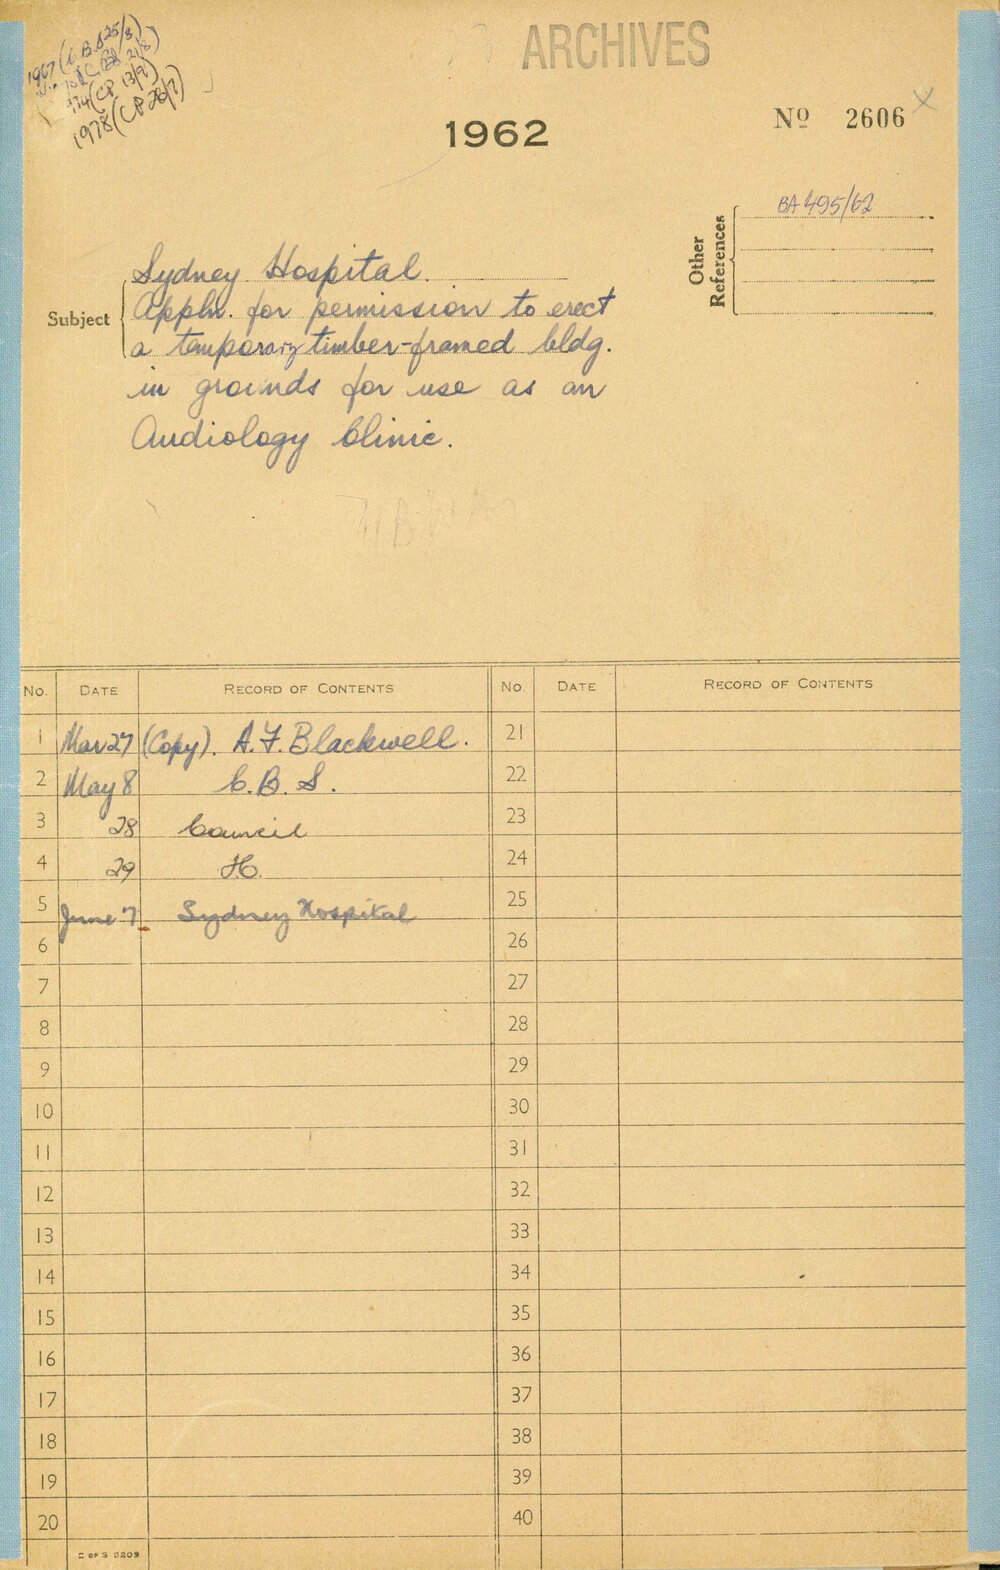 1967 (C.B.S 25/8)
(CBS 21/8)
(CP 13/9)
1978 (CP 28/7)
ARCHIVES
1962
Nº 2606 X
BA 495/62
Other References
Subject
Sydney Hospital.
Appln. for permission to erect
a temporary timber-framed bldg.
in grounds for use as an
Audiology Clinic.
No. DATE RECORD OF CONTENTS No. DATE RECORD OF CONTENTS
1 Mar 27 (Copy). A.F. Blackwell. 21
2 May 8 C.B.S. 22
3 28 Council 23
4 29 H. 24
5 June 7 Sydney Hospital 25
6 26
7 27
8 28
9 29
10 30
11 31
12 32
13 33
14 34
15 35
16 36
17 37
18 38
19 39
20 40
C OF S 5209